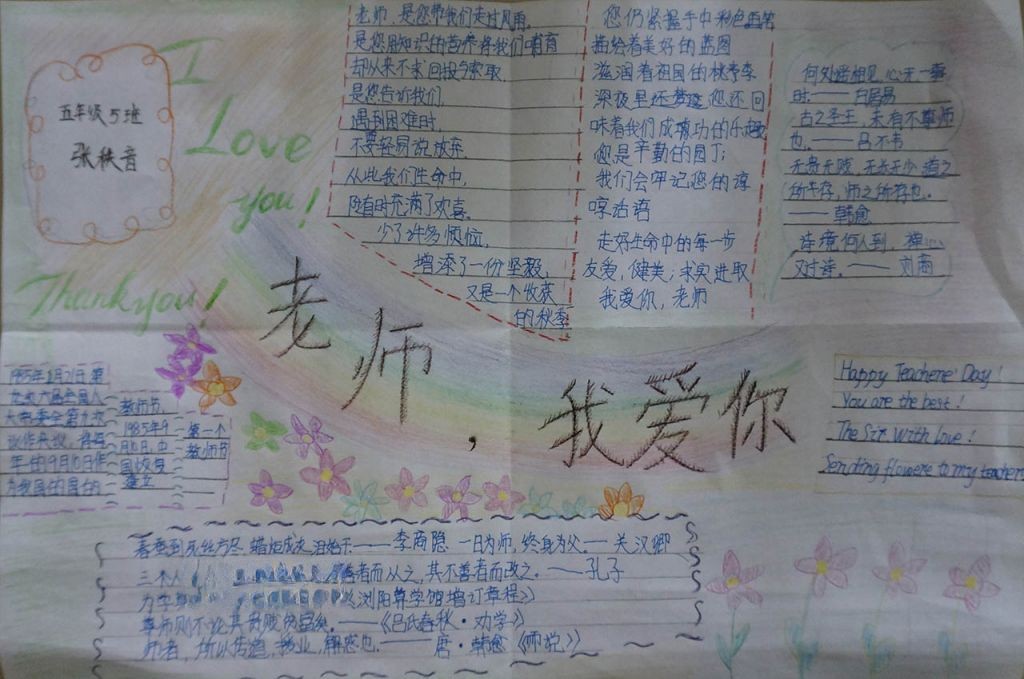 五年级5班
张秩音
I
Love
you!
Thank you!
老师，是您带我们走过风雨，
是您用知识的营养将我们哺育
却从来不求回报与索取
是您告诉我们，
遇到困难时，
不要轻易说放弃
从此我们生命中，
随时充满了欢喜。
少了许多烦恼，
增添了一份坚毅，
又是一个收获
的秋季
您仍紧握手中彩色画笔
描绘着美好的蓝图
滋润着祖国的桃李
深夜里还梦 您还回
味着我们成功的乐趣
您是辛勤的园丁；
我们会牢记您的谆
谆话语
走好生命中的每一步
友爱，健美；求实进取
我爱你，老师
何处遥相见，心无一事
时。——白居易
古之圣王，未有不尊师
也。——吕不韦
无贵无贱，无长无少 道之
所存，师之所存也。
——韩愈
诗境何人到，禅心
又过诗。——刘商
老师，我爱你
1985年1月21日 第
六届全国人
大常委会第九次
年的9月10日作
为我国的
教师节
1985年9
月10日 中
国恢复
建立
第一个
教师节
Happy Teachere' Day!
You are the best!
The Sit With love!
Sending flowere to my teacher
春蚕到死丝方尽 蜡炬成灰泪始干——李商隐 一日为师，终身为父。—关汉卿
三个人 善者而从之，其不善者而改之。——孔子
为学 《浏阳算学馆增订章程》
尊师则不论其贵贱贫富矣。——《吕氏春秋·劝学》
师者，所以传道，授业，解惑也。——唐·韩愈《师说》